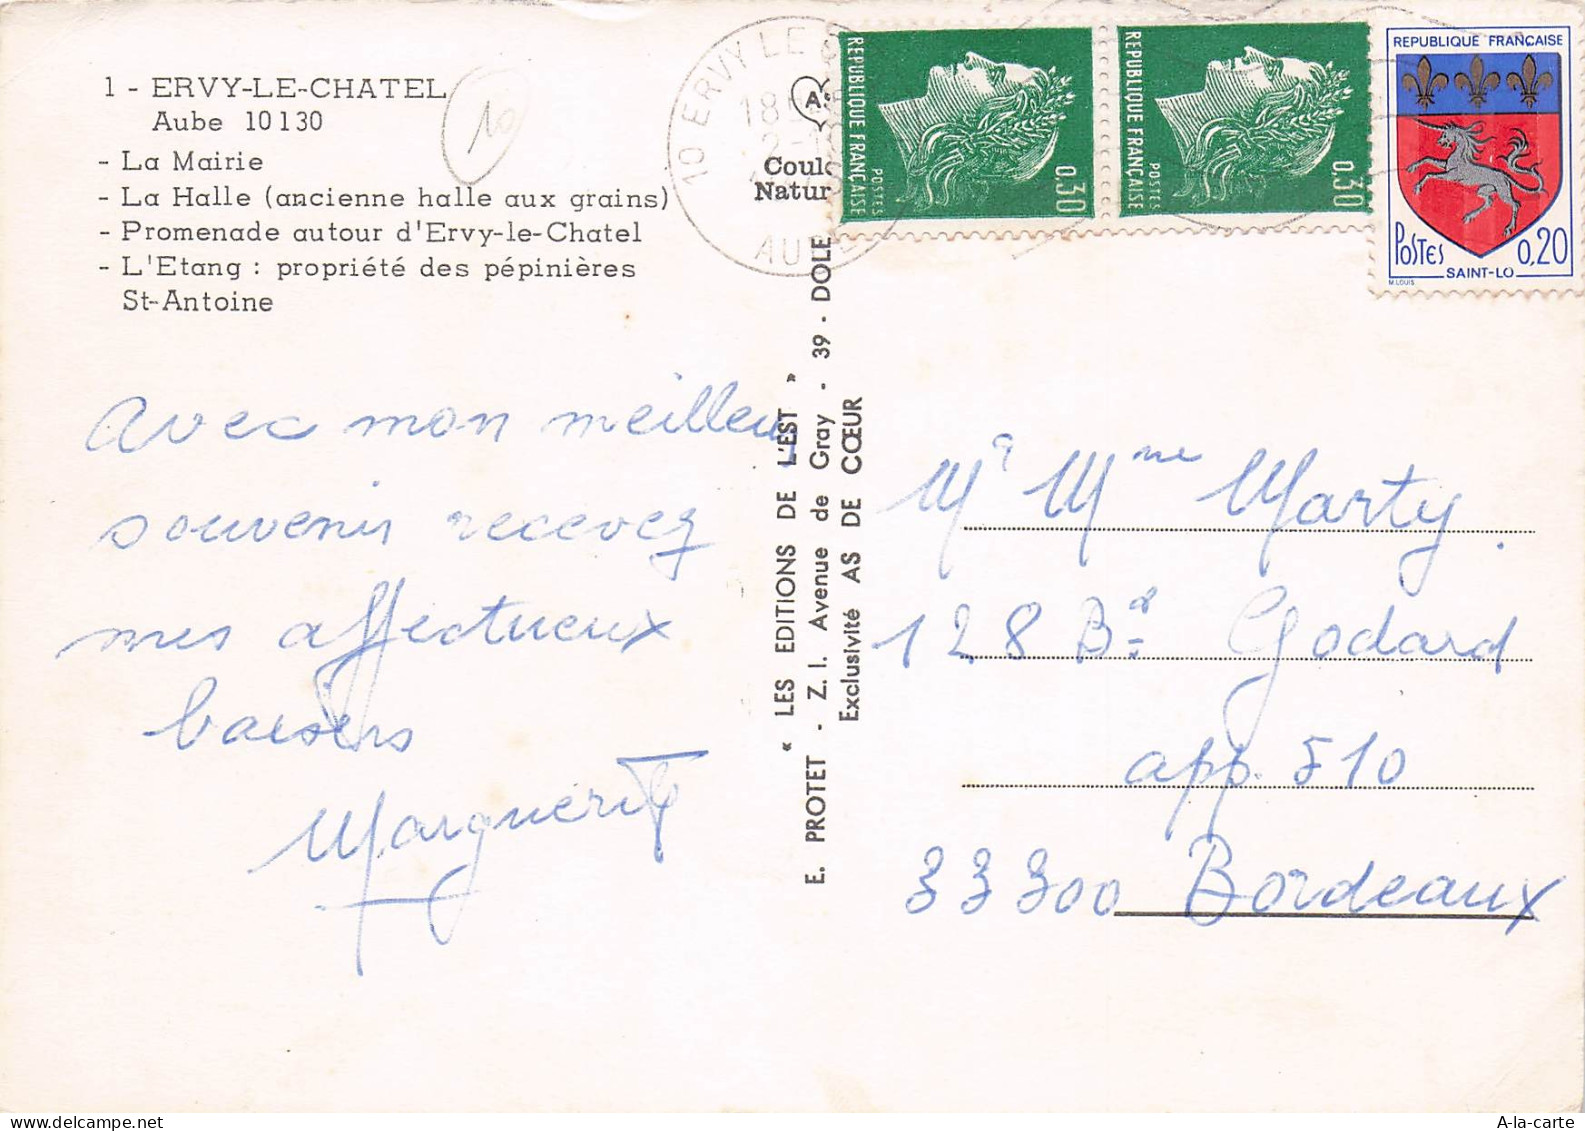 1 - ERVY-LE-CHATEL
Aube 10130
- La Mairie
- La Halle (ancienne halle aux grains)
- Promenade autour d'Ervy-le-Chatel
- L'Etang : propriété des pépinières
St-Antoine
10
10 ERVY LE
18
AUBE
Coul
Natur
REPUBLIQUE FRANÇAISE
POSTES
0,30
REPUBLIQUE FRANÇAISE
POSTES
0,30
REPUBLIQUE FRANÇAISE
POSTES 0,20
SAINT-LO
M.LOUIS
avec mon meilleur
souvenir recevez
mes affectueux
baisers
Marguerite
« LES EDITIONS DE L'EST »
E. PROTET - Z. I. Avenue de Gray - 39 - DOLE
Exclusivité AS DE CŒUR
Mr Mme Marty
128 Bd Godard
app. 510
33300 Bordeaux
A-la-carte